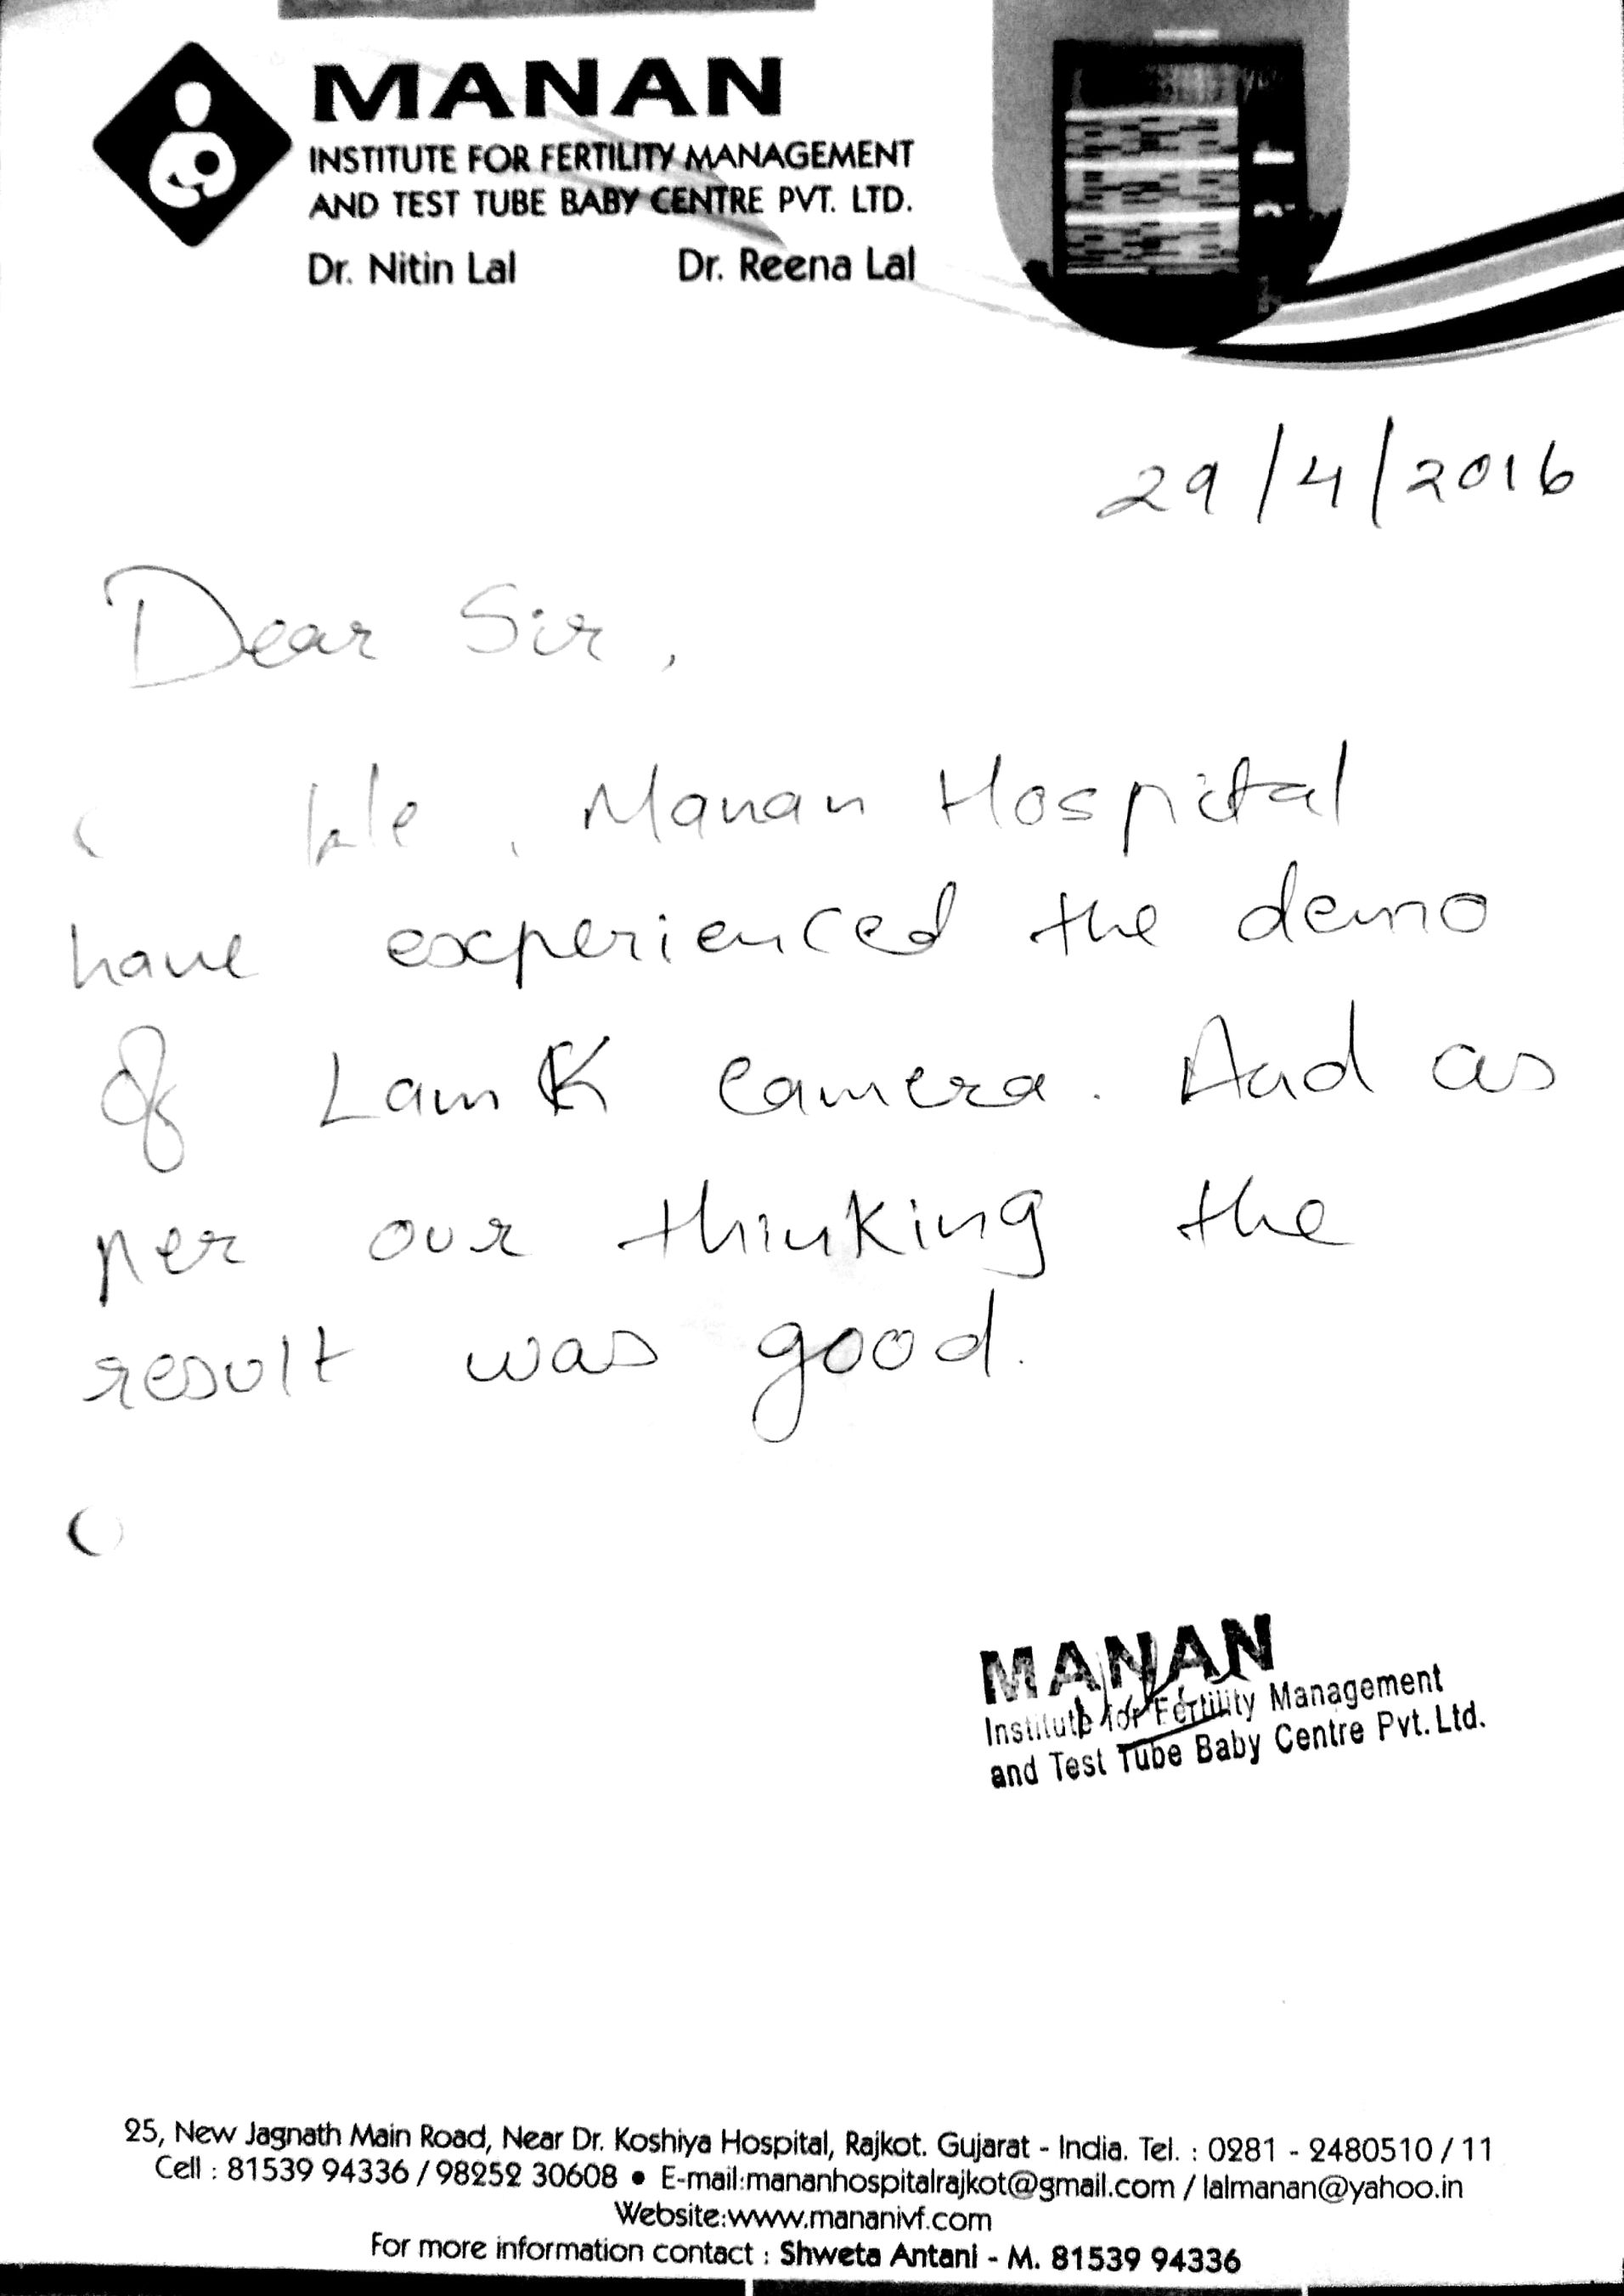 MANAN
INSTITUTE FOR FERTILITY MANAGEMENT
AND TEST TUBE BABY CENTRE PVT. LTD.
Dr. Nitin Lal Dr. Reena Lal
29/4/2016
Dear Sir,
We, Manan Hospital
have experienced the demo
of LamK camera. And as
per our thinking the
result was good.
MANAN
Institute for Fertility Management
and Test Tube Baby Centre Pvt. Ltd.
25, New Jagnath Main Road, Near Dr. Koshiya Hospital, Rajkot. Gujarat - India. Tel. : 0281 - 2480510 / 11
Cell : 81539 94336 / 98252 30608 • E-mail:mananhospitalrajkot@gmail.com / lalmanan@yahoo.in
Website:www.mananivf.com
For more information contact : Shweta Antani - M. 81539 94336